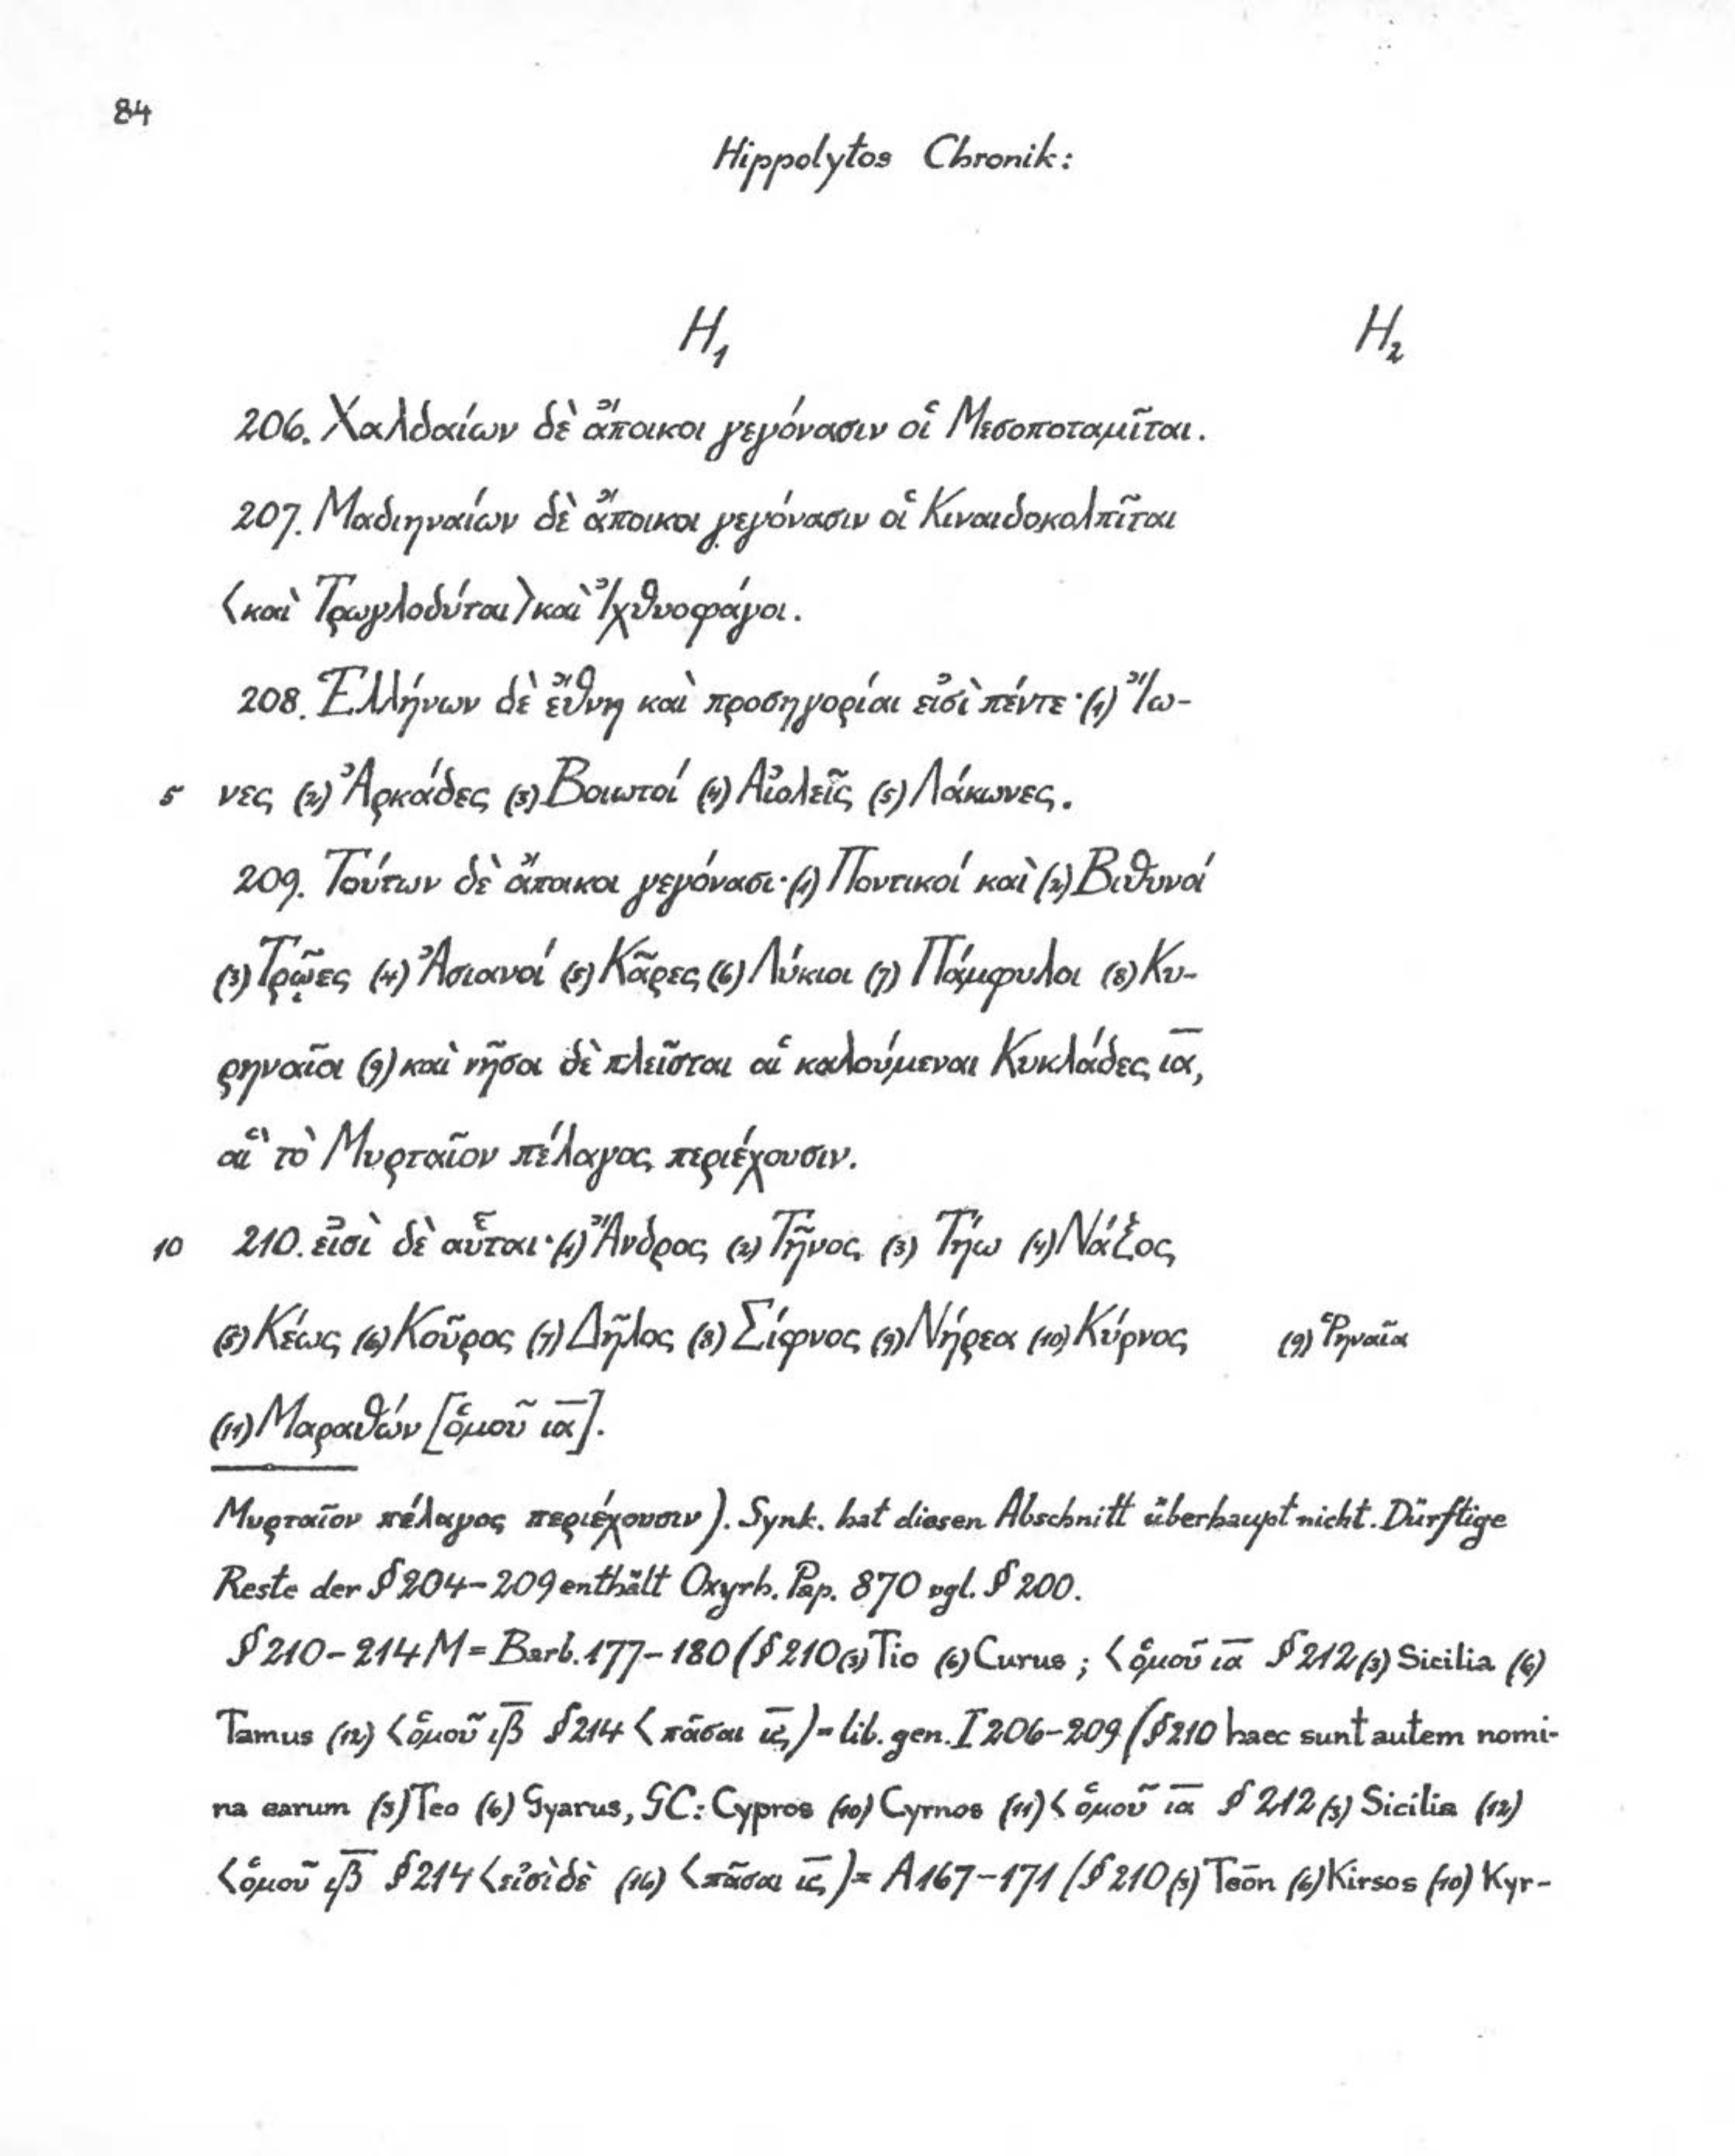 84
Hippolytos Chronik:
H₁ H₂
206. Χαλδαίων δὲ ἄποικοι γεγόνασιν οἱ Μεσοποταμῖται.
207. Μαδιηναίων δὲ ἄποικοι γεγόνασιν οἱ Κιναιδοκολπῖται
〈καὶ Τρωγλοδύται〉 καὶ Ἰχθυοφάγοι.
208. Ἑλλήνων δὲ ἔθνη καὶ προσηγορίαι εἰσὶ πέντε· (1) Ἴω-
5 νες (2) Ἀρκάδες (3) Βοιωτοί (4) Αἰολεῖς (5) Λάκωνες.
209. Τούτων δὲ ἄποικοι γεγόνασι· (1) Ποντικοί καὶ (2) Βιθυνοί
(3) Τρῷες (4) Ἀσιανοί (5) Κᾶρες (6) Λύκιοι (7) Πάμφυλοι (8) Κυ-
ρηναῖοι (9) καὶ νῆσοι δὲ πλεῖσται αἱ καλούμεναι Κυκλάδες ια̅,
αἳ τὸ Μυρταῖον πέλαγος περιέχουσιν.
10 210. εἰσὶ δὲ αὗται· (1) Ἄνδρος (2) Τῆνος (3) Τήω (4) Νάξος
(5) Κέως (6) Κοῦρος (7) Δῆλος (8) Σίφνος (9) Νήρεα (10) Κύρνος (9) Ῥηναῖα
(11) Μαραθών [ὁμοῦ ια̅].
Μυρταῖον πέλαγος περιέχουσιν). Synk. hat diesen Abschnitt überhaupt nicht. Dürftige
Reste der § 204-209 enthält Oxyrh. Pap. 870 vgl. § 200.
§ 210-214 M = Barb. 177-180 (§ 210 (3) Tio (6) Curus ; < ὁμοῦ ια̅ § 212 (3) Sicilia (6)
Tamus (12) < ὁμοῦ ιβ̅ § 214 < πᾶσαι ις̅) = lib. gen. I 206-209 (§ 210 haec sunt autem nomi-
na earum (3) Teo (6) Gyarus, GC: Cypros (10) Cyrnos (11) < ὁμοῦ ια̅ § 212 (3) Sicilia (12)
< ὁμοῦ ιβ̅ § 214 < εἰσὶ δὲ (16) < πᾶσαι ις̅) = A 167-171 (§ 210 (3) Teōn (6) Kirsos (10) Kyr-